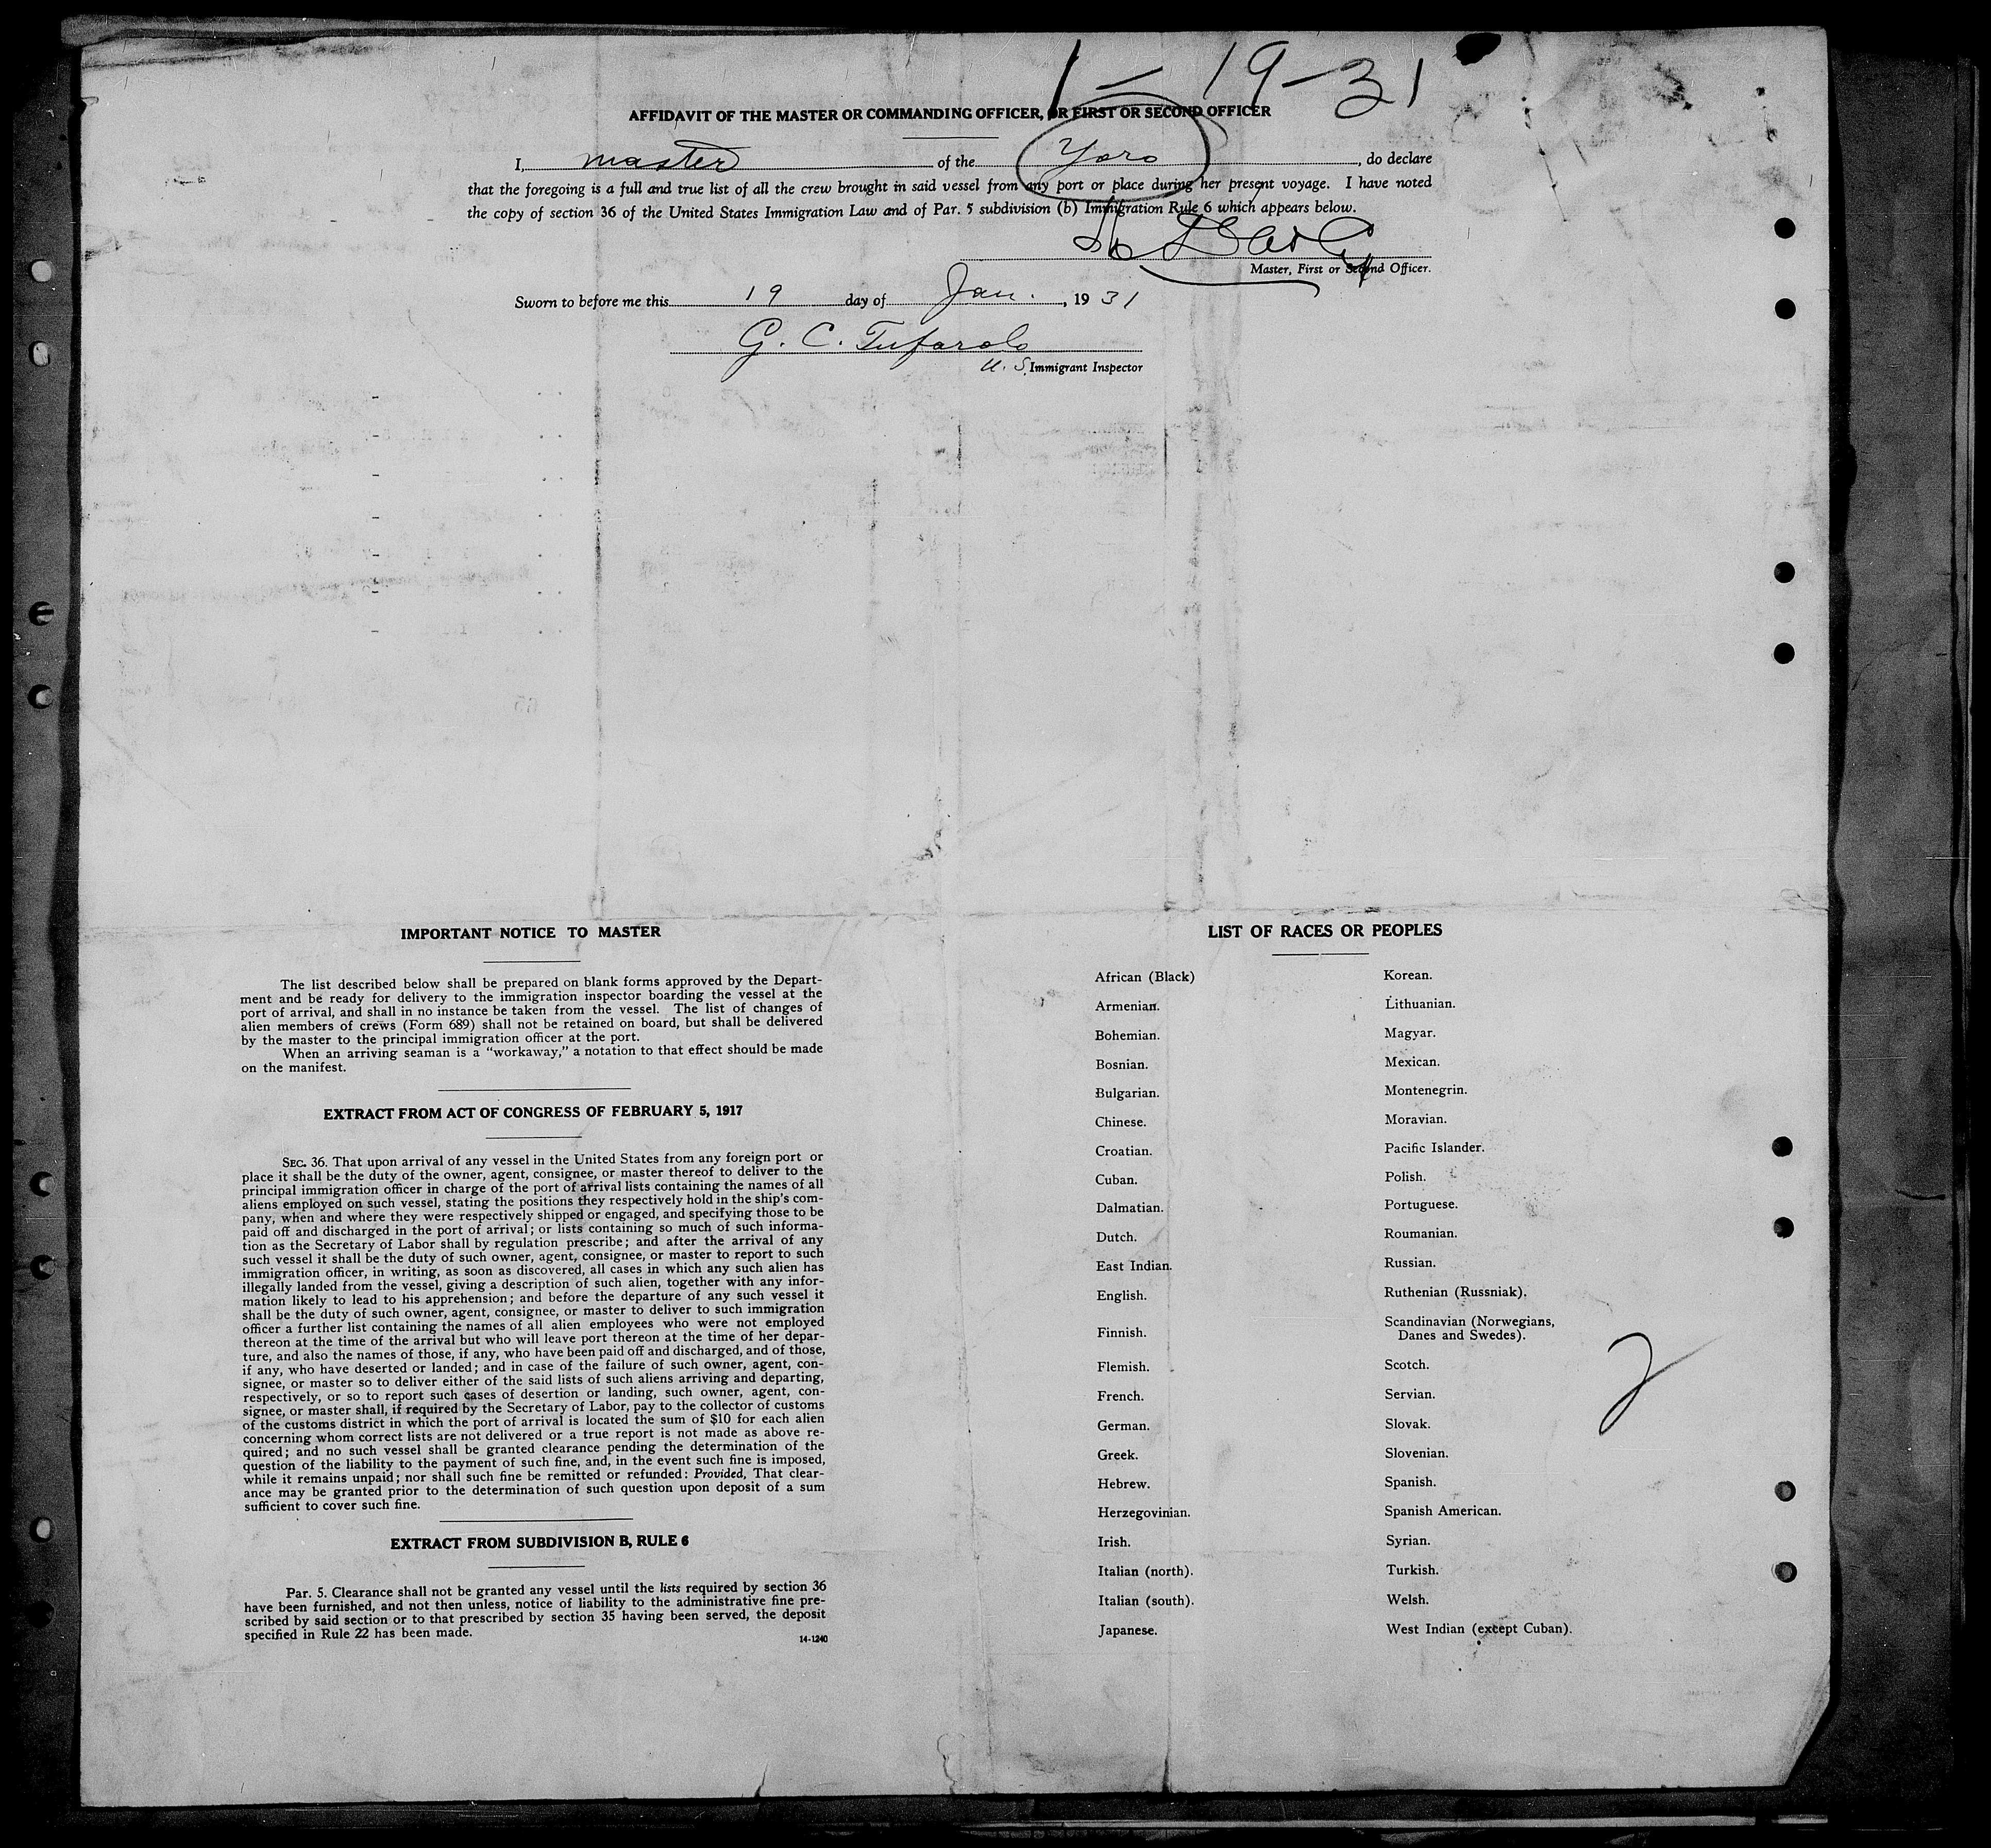 1-19-31
AFFIDAVIT OF THE MASTER OR COMMANDING OFFICER, OR FIRST OR SECOND OFFICER
I, master of the Yoro, do declare
that the foregoing is a full and true list of all the crew brought in said vessel from any port or place during her present voyage. I have noted
the copy of section 36 of the United States Immigration Law and of Par. 5 subdivision (b) Immigration Rule 6 which appears below.
Master, First or Second Officer.
Sworn to before me this 19 day of Jan., 1931
G. C. Tufarolo
U. S. Immigrant Inspector
IMPORTANT NOTICE TO MASTER
The list described below shall be prepared on blank forms approved by the Depart-
ment and be ready for delivery to the immigration inspector boarding the vessel at the
port of arrival, and shall in no instance be taken from the vessel. The list of changes of
alien members of crews (Form 689) shall not be retained on board, but shall be delivered
by the master to the principal immigration officer at the port.
When an arriving seaman is a "workaway," a notation to that effect should be made
on the manifest.
EXTRACT FROM ACT OF CONGRESS OF FEBRUARY 5, 1917
SEC. 36. That upon arrival of any vessel in the United States from any foreign port or
place it shall be the duty of the owner, agent, consignee, or master thereof to deliver to the
principal immigration officer in charge of the port of arrival lists containing the names of all
aliens employed on such vessel, stating the positions they respectively hold in the ship's com-
pany, when and where they were respectively shipped or engaged, and specifying those to be
paid off and discharged in the port of arrival; or lists containing so much of such informa-
tion as the Secretary of Labor shall by regulation prescribe; and after the arrival of any
such vessel it shall be the duty of such owner, agent, consignee, or master to report to such
immigration officer, in writing, as soon as discovered, all cases in which any such alien has
illegally landed from the vessel, giving a description of such alien, together with any infor-
mation likely to lead to his apprehension; and before the departure of any such vessel it
shall be the duty of such owner, agent, consignee, or master to deliver to such immigration
officer a further list containing the names of all alien employees who were not employed
thereon at the time of the arrival but who will leave port thereon at the time of her depar-
ture, and also the names of those, if any, who have been paid off and discharged, and of those,
if any, who have deserted or landed; and in case of the failure of such owner, agent, con-
signee, or master so to deliver either of the said lists of such aliens arriving and departing,
respectively, or so to report such cases of desertion or landing, such owner, agent, con-
signee, or master shall, if required by the Secretary of Labor, pay to the collector of customs
of the customs district in which the port of arrival is located the sum of $10 for each alien
concerning whom correct lists are not delivered or a true report is not made as above re-
quired; and no such vessel shall be granted clearance pending the determination of the
question of the liability to the payment of such fine, and, in the event such fine is imposed,
while it remains unpaid; nor shall such fine be remitted or refunded: Provided, That clear-
ance may be granted prior to the determination of such question upon deposit of a sum
sufficient to cover such fine.
EXTRACT FROM SUBDIVISION B, RULE 6
Par. 5. Clearance shall not be granted any vessel until the lists required by section 36
have been furnished, and not then unless, notice of liability to the administrative fine pre-
scribed by said section or to that prescribed by section 35 having been served, the deposit
specified in Rule 22 has been made.
14-1240
LIST OF RACES OR PEOPLES
African (Black)
Armenian.
Bohemian.
Bosnian.
Bulgarian.
Chinese.
Croatian.
Cuban.
Dalmatian.
Dutch.
East Indian.
English.
Finnish.
Flemish.
French.
German.
Greek.
Hebrew.
Herzegovinian.
Irish.
Italian (north).
Italian (south).
Japanese.
Korean.
Lithuanian.
Magyar.
Mexican.
Montenegrin.
Moravian.
Pacific Islander.
Polish.
Portuguese.
Roumanian.
Russian.
Ruthenian (Russniak).
Scandinavian (Norwegians,
Danes and Swedes).
Scotch.
Servian.
Slovak.
Slovenian.
Spanish.
Spanish American.
Syrian.
Turkish.
Welsh.
West Indian (except Cuban).
2